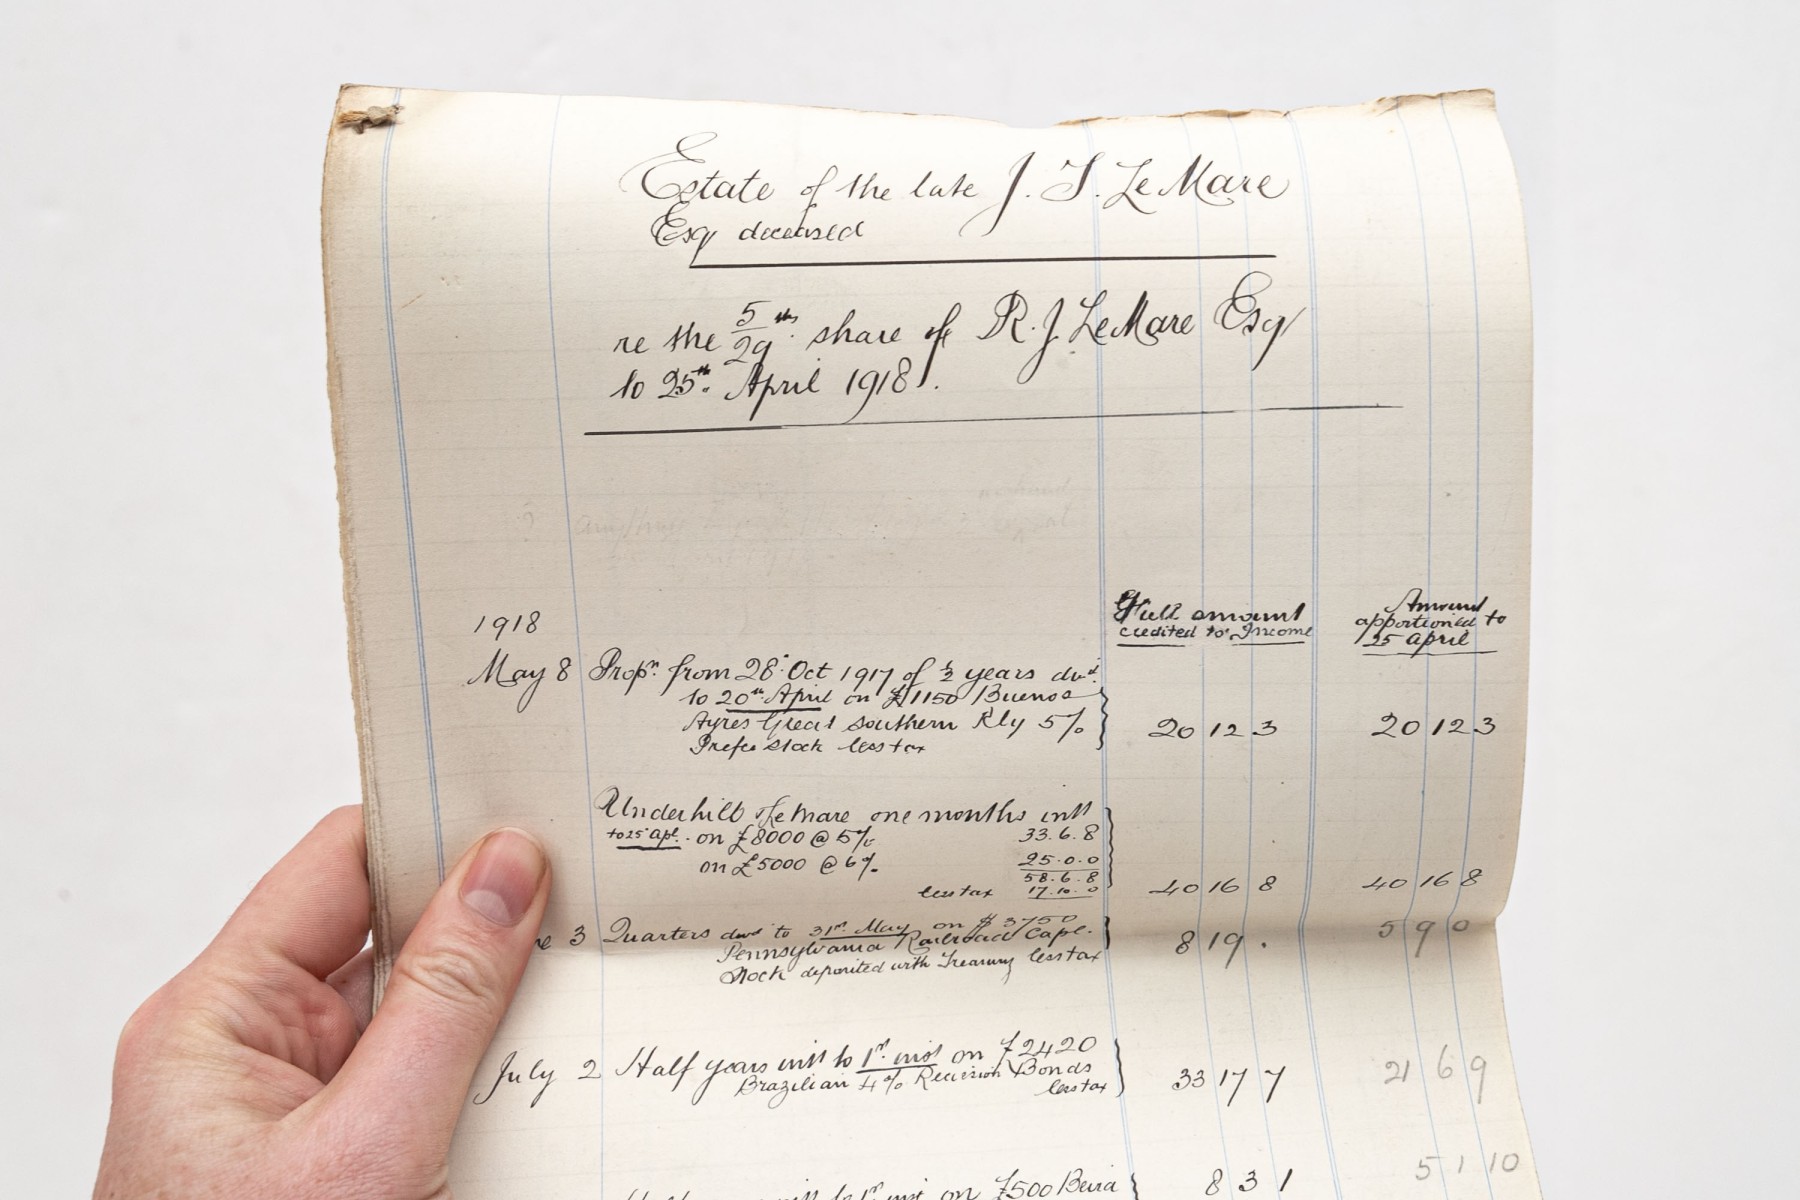 Estate of the late J. T. Le Mare
Esq deceased
re the 5/29 ths. share of R. J. LeMare Esq
to 25th. April 1918.
1918
Full amount
credited to Income
Amount
apportioned to
25 April
May 8 Propn. from 28 Oct 1917 of ½ years divd.
to 20th April on £1150 Buenos
Ayres Great Southern Rly 5%
Prefce Stock less tax 20 12 3 20 12 3
Underhill LeMare one months intt
to 25 Apl. on £8000 @ 5% 33.6.8
on £5000 @ 6%. 25.0.0
58.6.8
less tax 17.10.0 40 16 8 40 16 8
ne 3 Quarters divd to 31st May on $3750
Pennsylvania Railroad Capl.
Stock deposited with Treasury less tax 8 19 . 5 9 0
July 2 Half years intt to 1st. inst on £2420
Brazilian 4% Recision Bonds
less tax 33 17 7 21 6 9
Half years intt to 1st inst on £500 Beira 8 3 1 5 1 10